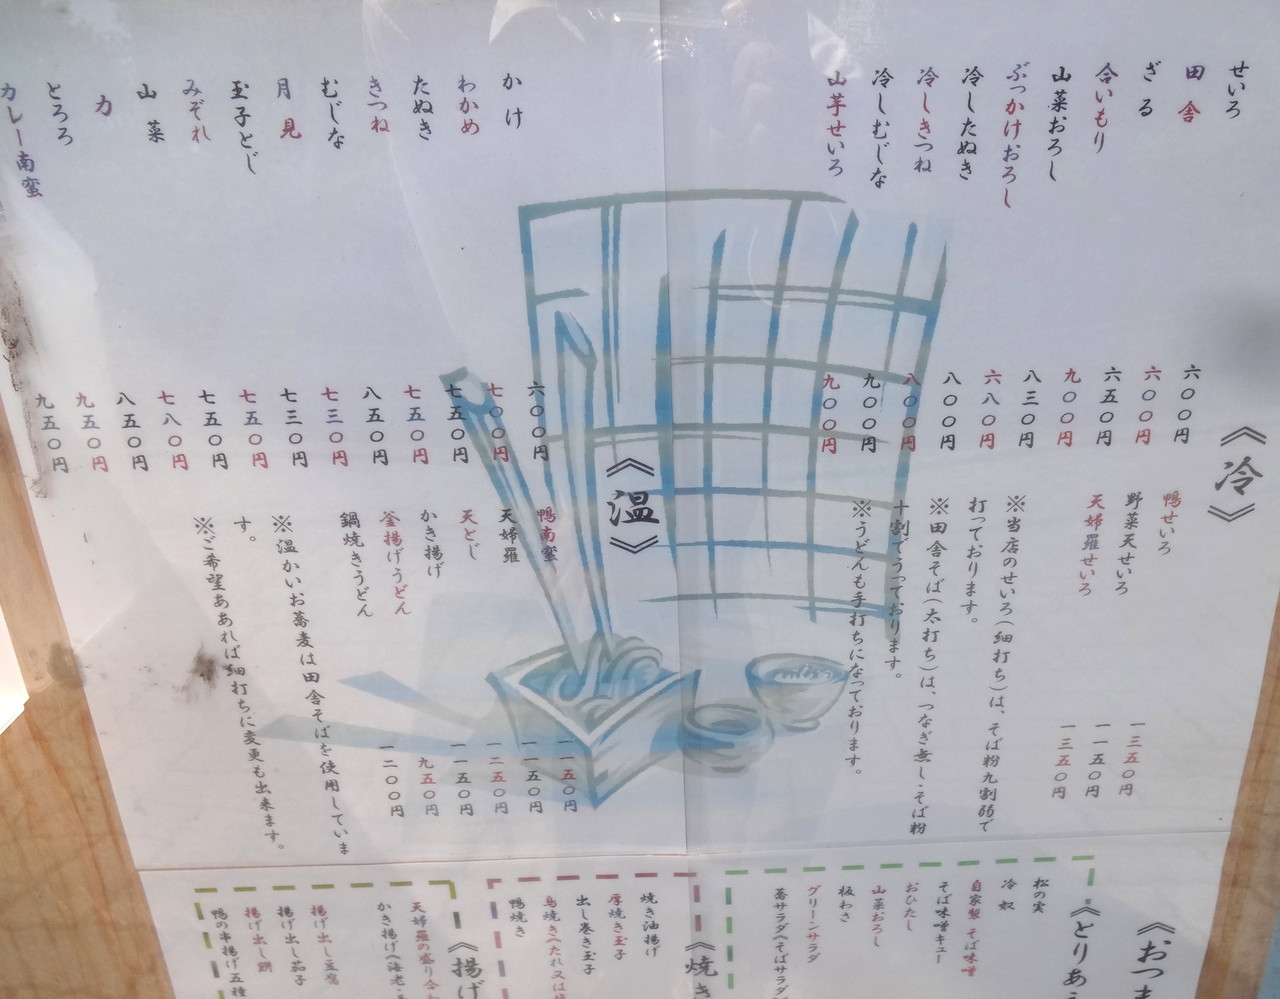 《冷》
せいろ 六〇〇円
田舎 六〇〇円
ざる 六五〇円
合いもり 九〇〇円
山菜おろし 八三〇円
ぶっかけおろし 六八〇円
冷したぬき 八〇〇円
冷しきつね 八〇〇円
冷しむじな 九〇〇円
山芋せいろ 九〇〇円
鴨せいろ 一三五〇円
野菜天せいろ 一一五〇円
天婦羅せいろ 一三五〇円
※当店のせいろ(細打ち)は、そば粉九割弱で
打っております。
※田舎そば(太打ち)は、つなぎ無し・そば粉
十割でうっております。
※うどんも手打ちになっております。
《温》
かけ 六〇〇円
わかめ 七〇〇円
たぬき 七五〇円
きつね 七五〇円
むじな 八五〇円
月見 七三〇円
玉子とじ 七三〇円
みぞれ 七五〇円
山菜 七五〇円
力 七八〇円
とろろ 八五〇円
カレー南蛮 九五〇円
九五〇円
鴨南蛮 一一五〇円
天婦羅 一一五〇円
天とじ 一二五〇円
かき揚げ 一一五〇円
釜揚げうどん 九五〇円
鍋焼きうどん 一二〇〇円
※温かいお蕎麦は田舎そばを使用していま
す。
※ご希望ああれば細打ちに変更も出来ます。
《おつま
《とりあえ
松の実
冷奴
自家製そば味噌
そば味噌キュー
おひたし
山菜おろし
板わさ
グリーンサラダ
蕎サラダ(そばサラダ
《焼き
焼き油揚げ
厚焼き玉子
出し巻き玉子
鳥焼き(たれ又は塩
鴨焼き
《揚げ
天婦羅の盛り合わ
かき揚げ(海老・
揚げ出し豆腐
揚げ出し茄子
揚げ出し餅
鴨の串揚げ五種